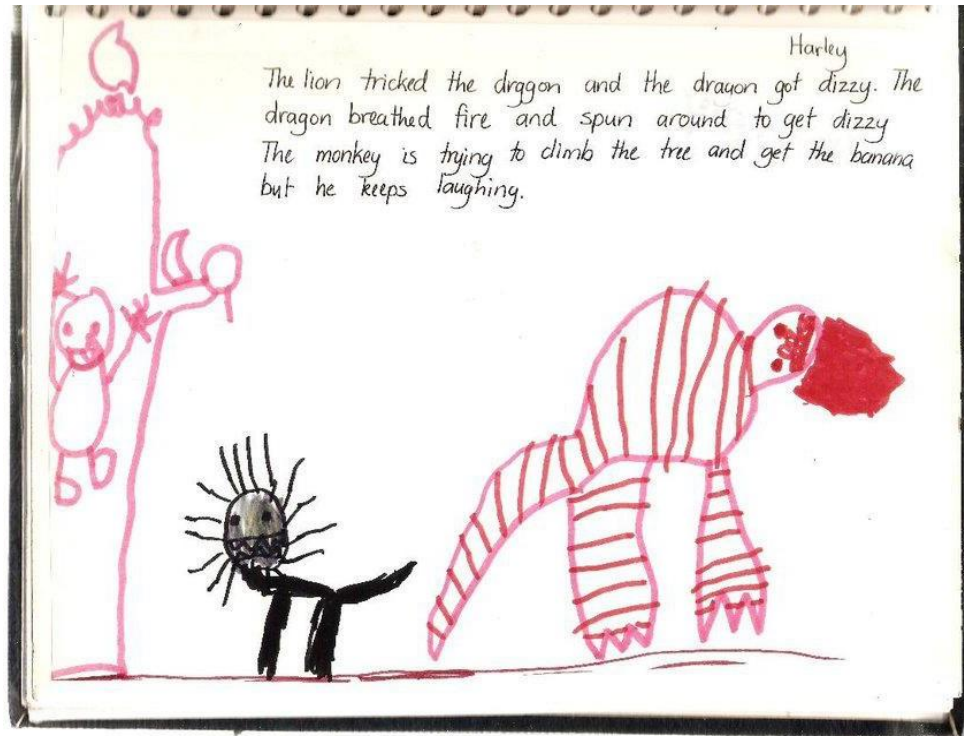 Harley
The lion tricked the draggon and the dragon got dizzy. The
dragon breathed fire and spun around to get dizzy
The monkey is trying to climb the tree and get the banana
but he keeps laughing.